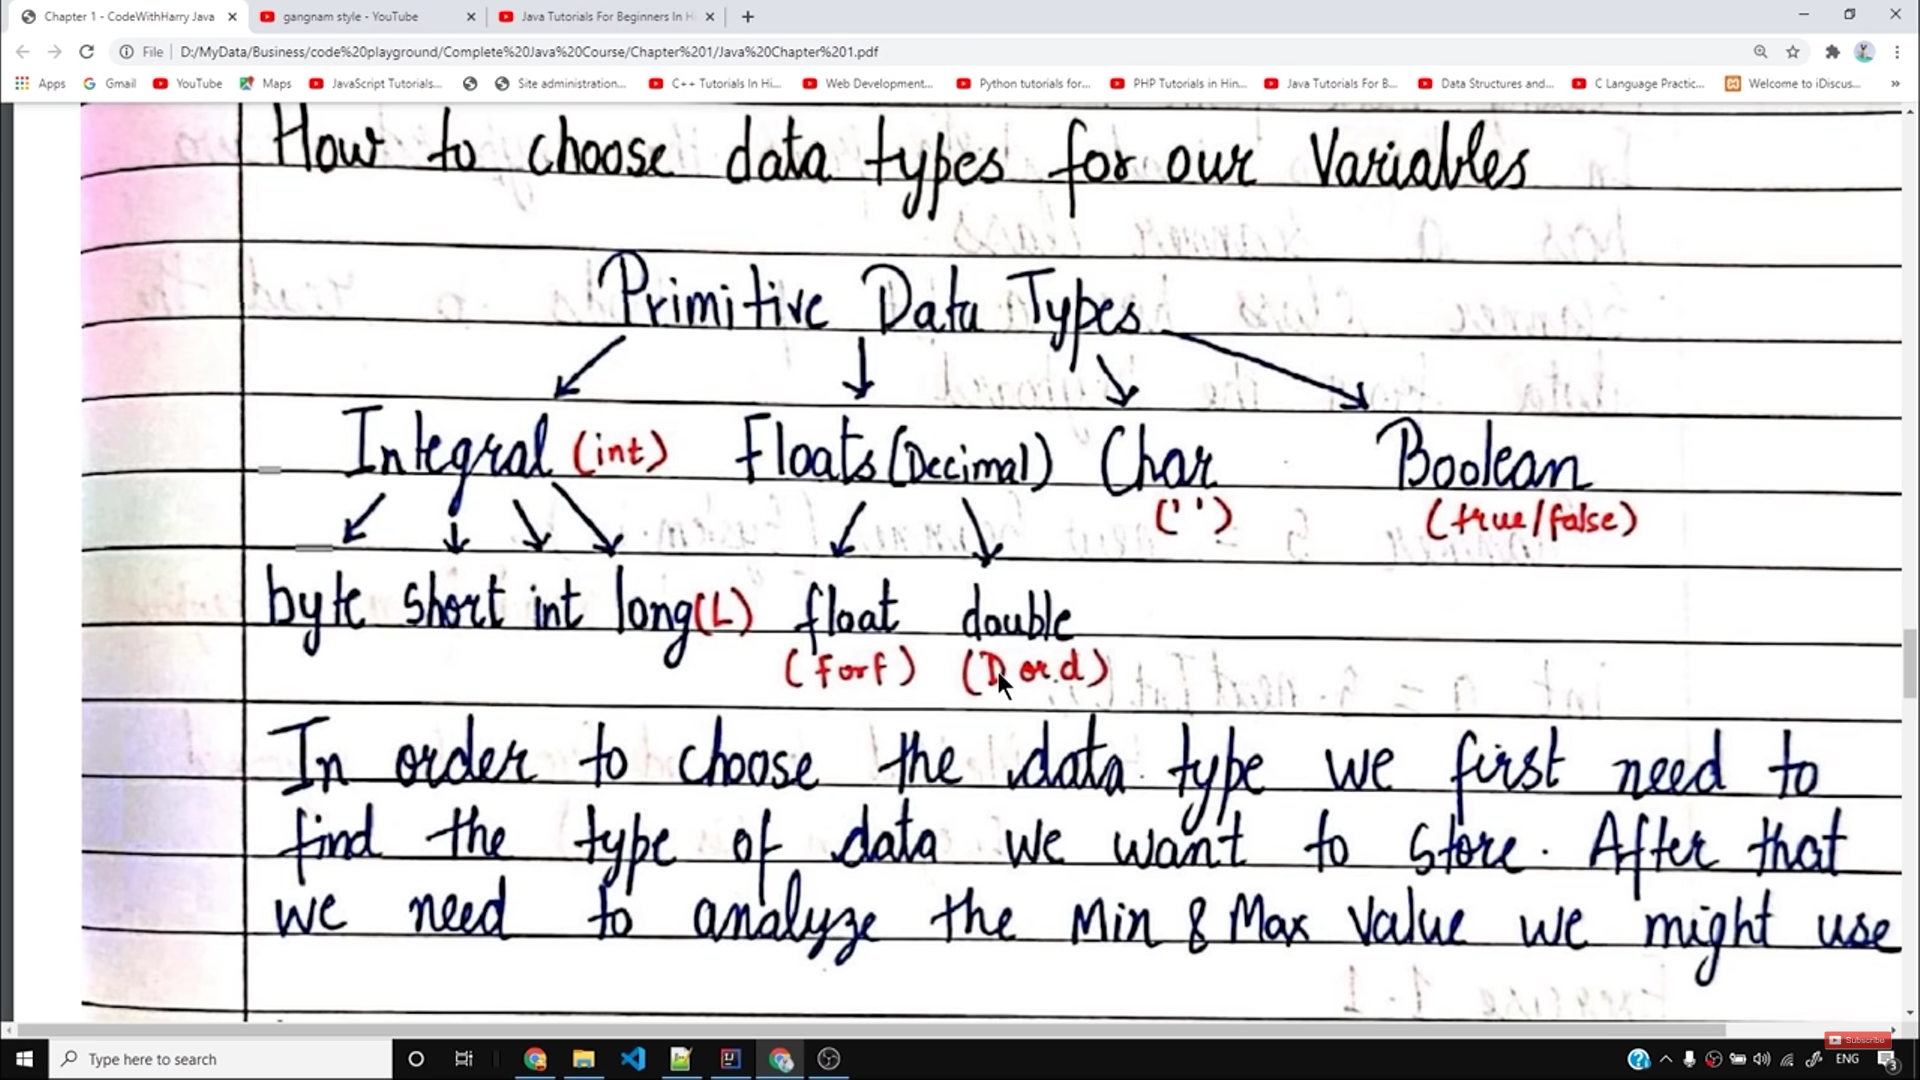 Chapter 1 - CodeWithHarry Java
gangnam style - YouTube
Java Tutorials For Beginners In H
File | D:/MyData/Business/code%20playground/Complete%20Java%20Course/Chapter%201/Java%20Chapter%201.pdf
Apps Gmail YouTube Maps JavaScript Tutorials... Site administration... C++ Tutorials In Hi... Web Development... Python tutorials for... PHP Tutorials in Hin... Java Tutorials For B... Data Structures and... C Language Practic... Welcome to iDiscus... »
How to choose data types for our Variables
Primitive Data Types
Integral (int) Floats (Decimal) Char Boolean
(' ') (true/false)
byte short int long(L) float double
(F or f) (D or d)
In order to choose the data type we first need to
find the type of data we want to store. After that
we need to analyze the Min & Max Value we might use
Subscribe
Type here to search
ENG
3